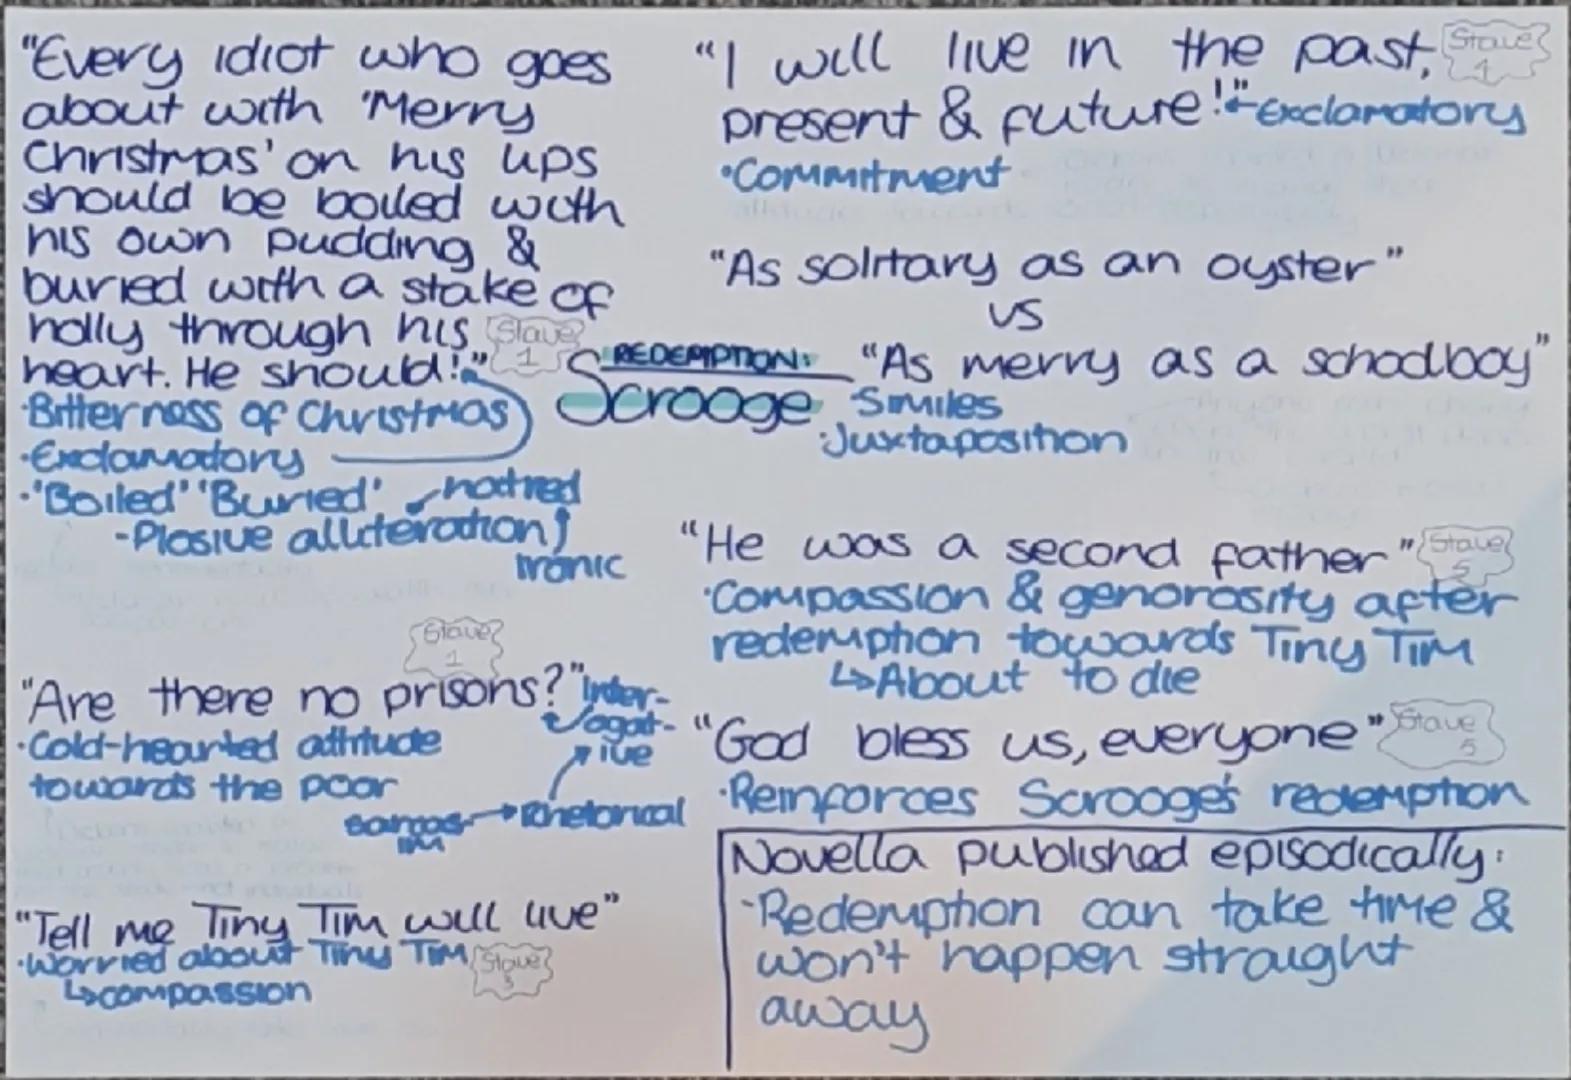 "Every idiot who goes
about with 'Merry
Christmas' on his lips
should be boiled with
his own pudding &
buried with a stake of
holly through his
heart. He should!"
Stave
1
·Bitterness of Christmas
·Exclamatory
·'Boiled' 'Buried'
hatred
-Plosive alliteration
ironic
Stave
1
"Are there no prisons?"
Inter-
ogat-
ive
·Cold-hearted attitude
towards the poor
sarcas-
im
Rhetorical
"Tell me Tiny Tim will live"
·Worried about Tiny Tim
↳compassion
Stave
3
REDEMPTION:
Scrooge
"I will live in the past,
present & future!"
Stave
4
←Exclamatory
·Commitment
"As solitary as an oyster"
VS
"As merry as a schoolboy"
Similes
·Juxtaposition
"He was a second father"
Stave
5
·Compassion & generosity after
redemption towards Tiny Tim
↳About to die
"God bless us, everyone"
Stave
5
·Reinforces Scrooge's redemption
Novella published episodically:
-Redemption can take time &
won't happen straight
away